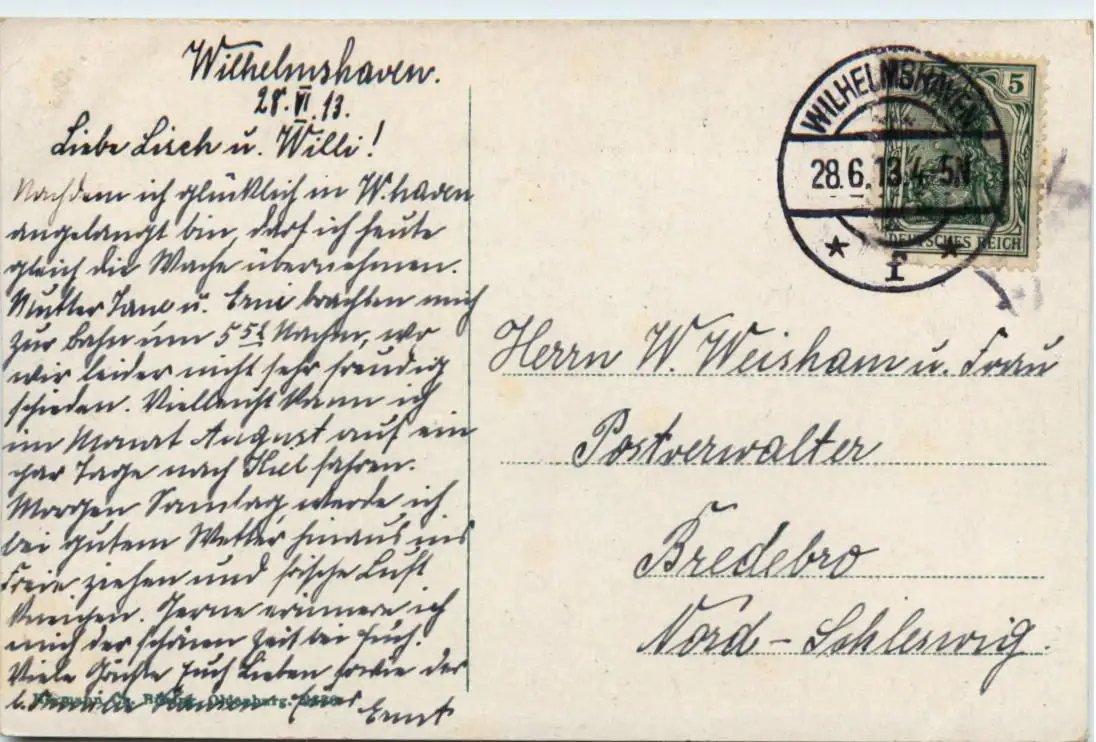 Wilhelmshaven.
28.VI.13.
Liebe Lisch u. Willi!
Nachdem ich glücklich in W.haven
angelangt bin, darf ich heute
gleich die Wache übernehmen.
Mutter Tane u. Erni brachten mich
zur Bahn um 5 Nachm, wo
wir leider nicht sehr freudig
schieden. Vielleicht kann ich
im Monat August auf ein
par Tage nach Kiel fahren.
Morgen Sonntag werde ich
bei gutem Wetter hinaus ins
Freie ziehen und frische Luft
kneipen. Gerne erinnere ich
mich der schönen Zeit bei Euch.
Viele Grüße Euch Lieben sowie der
l. Familie Euer
Ernst
Oldenburg.
WILHELMSHAVEN
28.6.13.4-5N
* f *
5
DEUTSCHES REICH
Herrn W. Weisham u. Frau
Postverwalter
Bredebro
Nord-Schleswig.